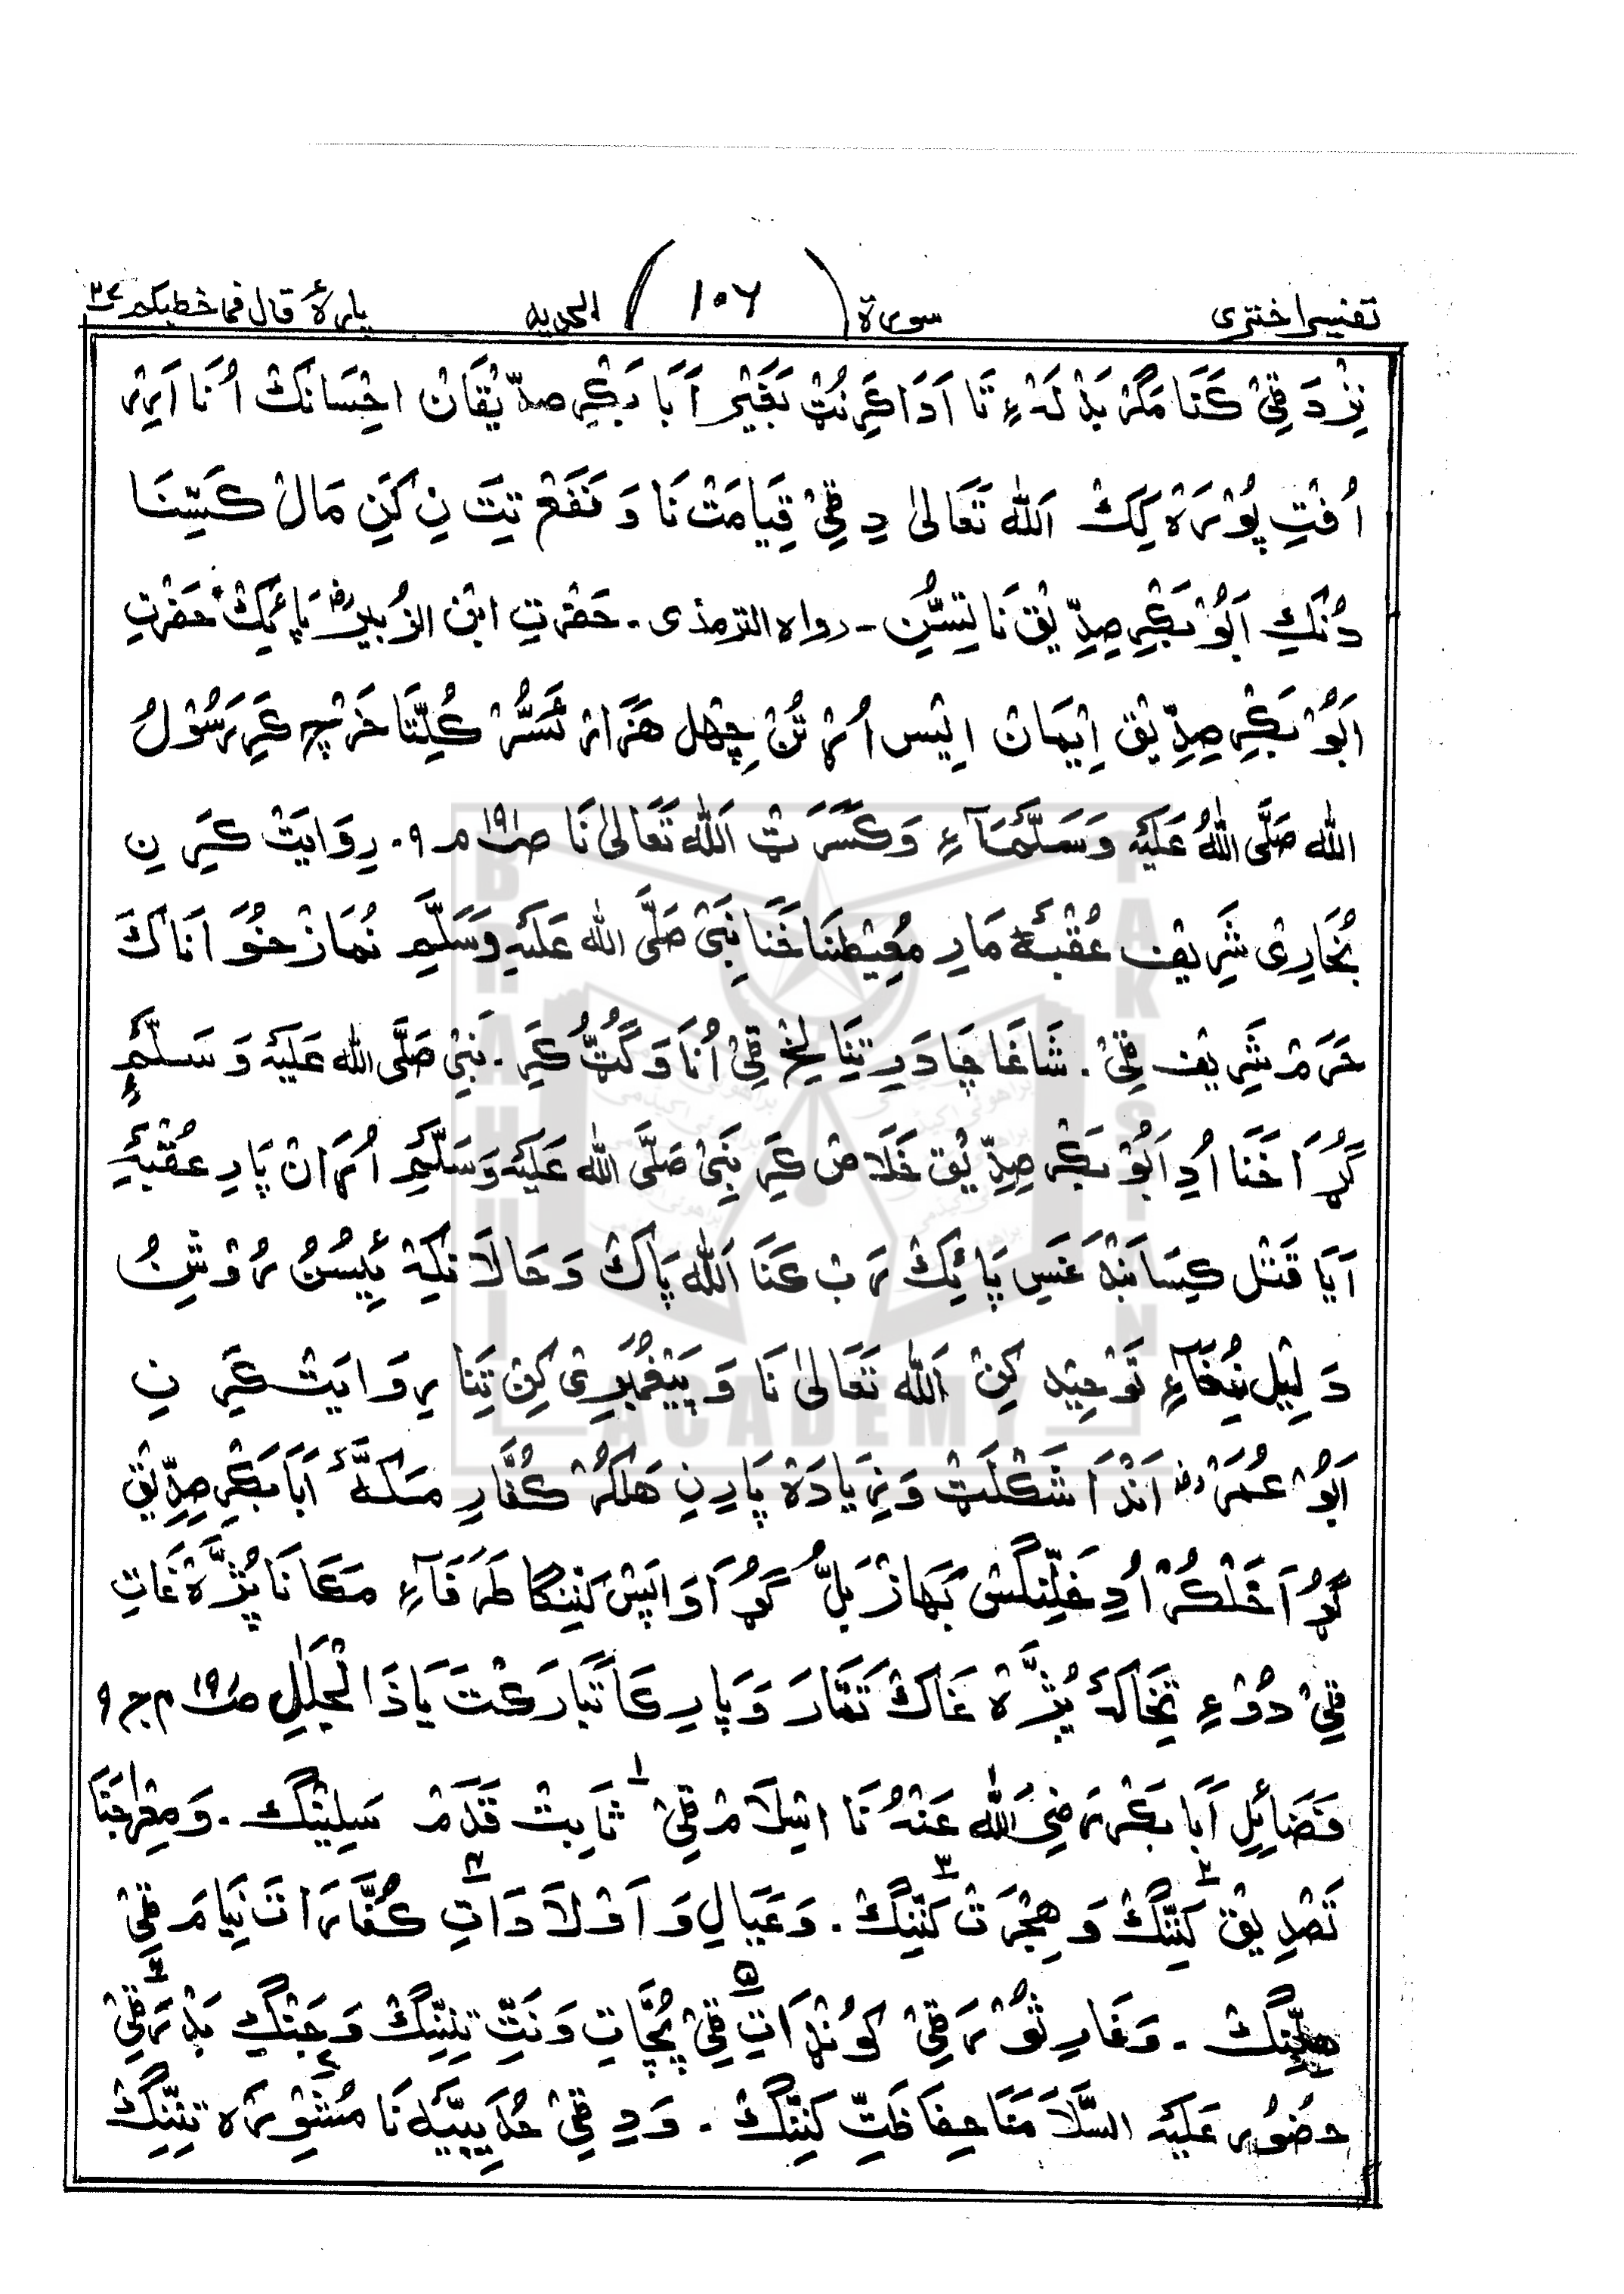 تفسیر اختری سورۃ (۱۰۶) الحدید پارۀ قال فما خطبکم ۲۷
نِزْدَ قِیْ کَنَا مَگرْ بَدْلَہٰءِ تَا اَدَا کَرِنُٹْ بَغَیْر اَبَا بَکْرِ صِدِّیْقَانْ اِحْسَانَکْ اُنَا اَرِیْر
اُفْتِ پُوْرَہْ کِکْ اَللّٰہ تَعَالیٰ دِ قِیْ قِیَامَتْ نَا وَ نَفَعْ تِتَ نِ کَنِ مَالْ کَسِّنَا
دُنْکِ اَبُوْبَکْرِ صِدِّیْق نَا تِسُّنِ - رواہ الترمذی - حَضْرَتِ ابْن الزُبَیْرؓ پَائِکْ حَضْرَتِ
اَبُوْ بَکْرِ صِدِّیْق اِیْمَانْ اِیْس اُرْ تُنْ چِھِل ھَزَارْ تُسُّرْ کُلِّتَا خَرْچ کَرِ رَسُوْلُ
اللّٰہ صَلَّی اللّٰہُ عَلَیْہِ وَسَلَّمَآءِ وَ کَسَّرَ تٹِ اَللّٰہ تَعَالیٰ نَا صـ۱۹۱ م ۹ . رِوَایَتْ کَرِ نِ
بُخَارِیْ شَرِیْف عُقْبَہ مَارِ مُعِیْطنَا خَنَا نَبِیْ صَلَّی اللّٰہ عَلَیْہِ وَسَلَّمِ نُمَازْ خوَا اَنَا کَ
حَرَمْ شَرِیْف قِیْ . شَاغَا چَادَرِ تِنَا لِخْ قِیْ اُنَا وَ گُٹُّ کَرِ . نَبِیْ صَلَّی اللّٰہ عَلَیْہ وَ سَلَّمِ
گُڑَا خَنَا اُدِ اَبُوْ بَکْر صِدِّیْق خَلَاصْ کَرِ نَبِیْ صَلَّی اللّٰہ عَلَیْہِ وَسَلَّمِ اُرَانْ پَارِ عُقْبَہِ
اَیَا قَتْل کِسَا بَنْدَ غَسِ پَائِکْ رَبْ کَنَا اَللّٰہ پَاکْ وَ حَالَانْکِہْ ئِسُنْ رُوْشِنُ
دَلِیْل نُخَآءِ تَوْحِیْد کِنْ اَللّٰہ تَعَالیٰ نَا وَ پَیْغَمْبَرِیْ کِنْ تِنَا رِوَایَتْ کَرِ نِ
اَبُوْ عُمَرْؓ اَنْدَا شَکْلَٹْ وَ زِیَادَہْ پَارِنِ ھَلْکُرْ کُفَّارِ مَکَّہَ اَبَابَکْرِ صِدِّیْقِ
گُڑَا خَلْکُرْ اُدِ خَلِّنْگسْ بَہَازْ بَلُّ گُڑَا وَاپَسْ کَنِنْگا طَرَفَآءِ مَکَا نَا پُژَّہْ غَاتِ
قِیْ دُوْءِ تِخَاکَہ پُژَّہْ غَاکْ تَمَّارَ وَ پَارِ کَا تَبَارَکْتَ یَا ذَا الْجَلَالِ صـ۱۹۱ م ج ۹
فَضَائِلِ اَبَا بَکْر رَضِیَ اللّٰہ عَنْہُ نَا اِسْلَامْ قِیْ ۱ ثَابِتْ قَدَمْ سَلِیْنْگ . وَ مِعْرَاجَنَا
تَصْدِیْق کَنِنْگْ ۲ وَ ھِجْرَتْ کَنِنْگْ ۳ . وَ عَیَالِ وَ اَوْلَادَاتِ ۴ کُفَّارَاتَ نِیَامَ قِیْ
ھلِّنْگْ . وَ غَارِ ثَوْرَ قِیْ کوُنْڈَاتِ ۵ قِیْ پُچَّاتِ وَ نَتِّ تِنِنْگْ وَ جَنْگِ بَدْرَ قِیْ ۶
حضُوْر عَلَیْہ السَّلَامَنَا حِفَاظَتِّ کَنِنْگْ . وَ دِ قِیْ حُدَیْبِیَّہ نَا ۷ مُشْوِرَہ تِنِنْگْ